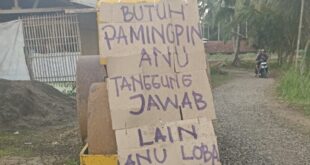 BUTUH
PAMINGPIN
ANU
TANGGUNG
JAWAB
LAIN
ANU LOBA